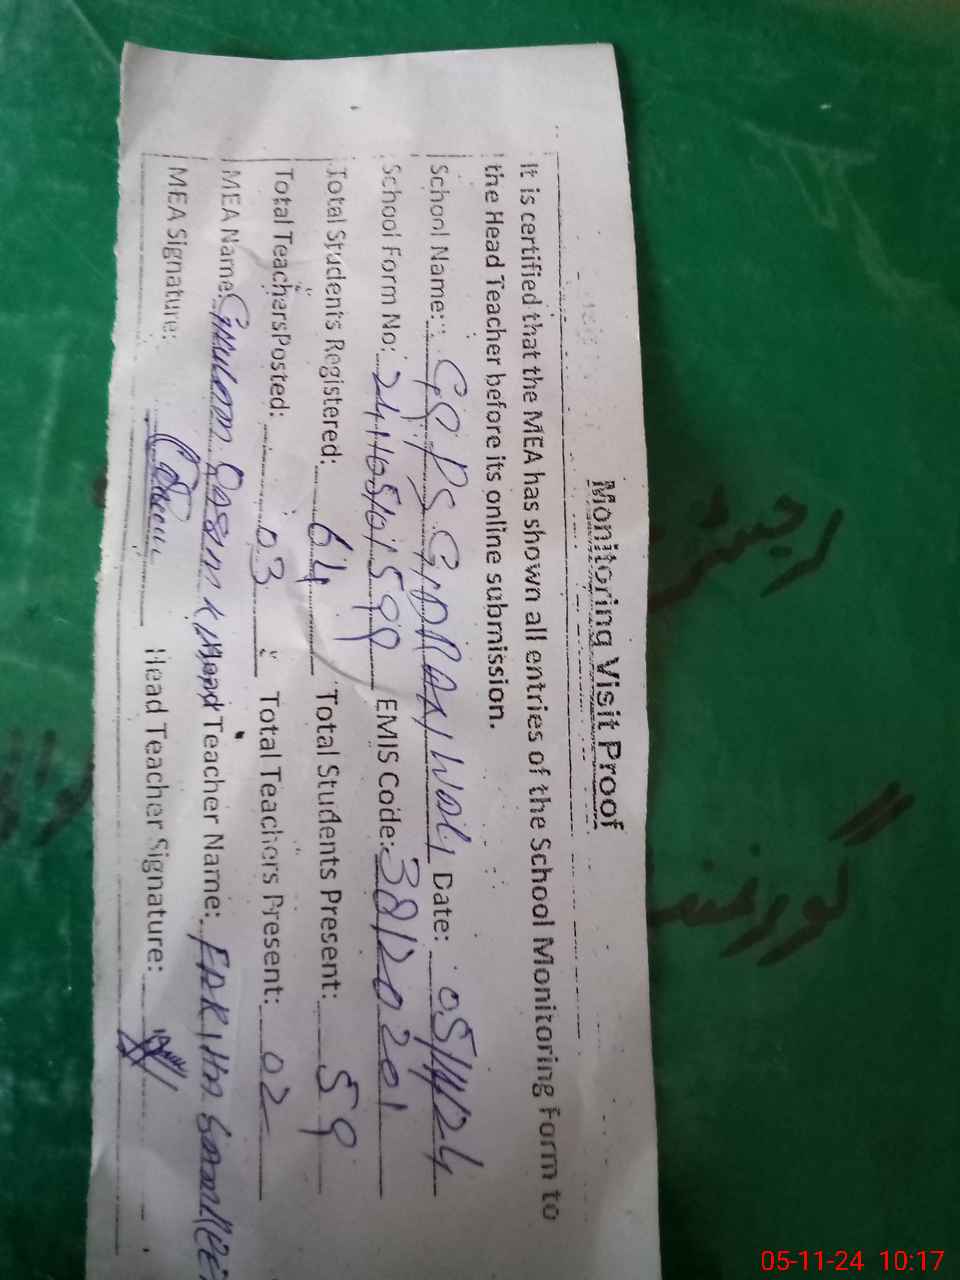 Monitoring Visit Proof
It is certified that the MEA has shown all entries of the School Monitoring Form to
the Head Teacher before its online submission.
School Name: GPS Date: 05/11/24
School Form No: EMIS Code: 38120201
Total Students Registered: 64 Total Students Present: 59
Total TeachersPosted: 03 Total Teachers Present: 02
MEA Name: Teacher Name:
MEA Signature: Head Teacher Signature:
گورنمنٹ
05-11-24 10:17